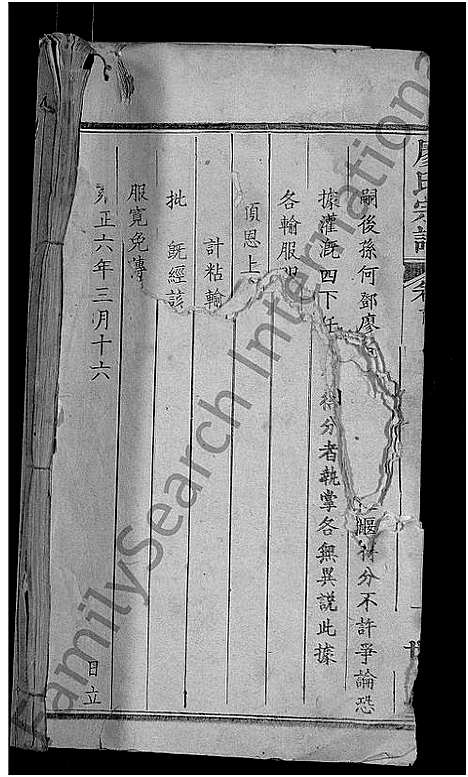 廖氏宗譜
嗣後孫何鄧廖 堰得分不許爭論恐
據灌溉四下任 得分者執掌各無異說此據
各輸服
頂恩上
計粘輸
批 既經該
服寬免
雍正六年三月十六 日立
FamilySearch International